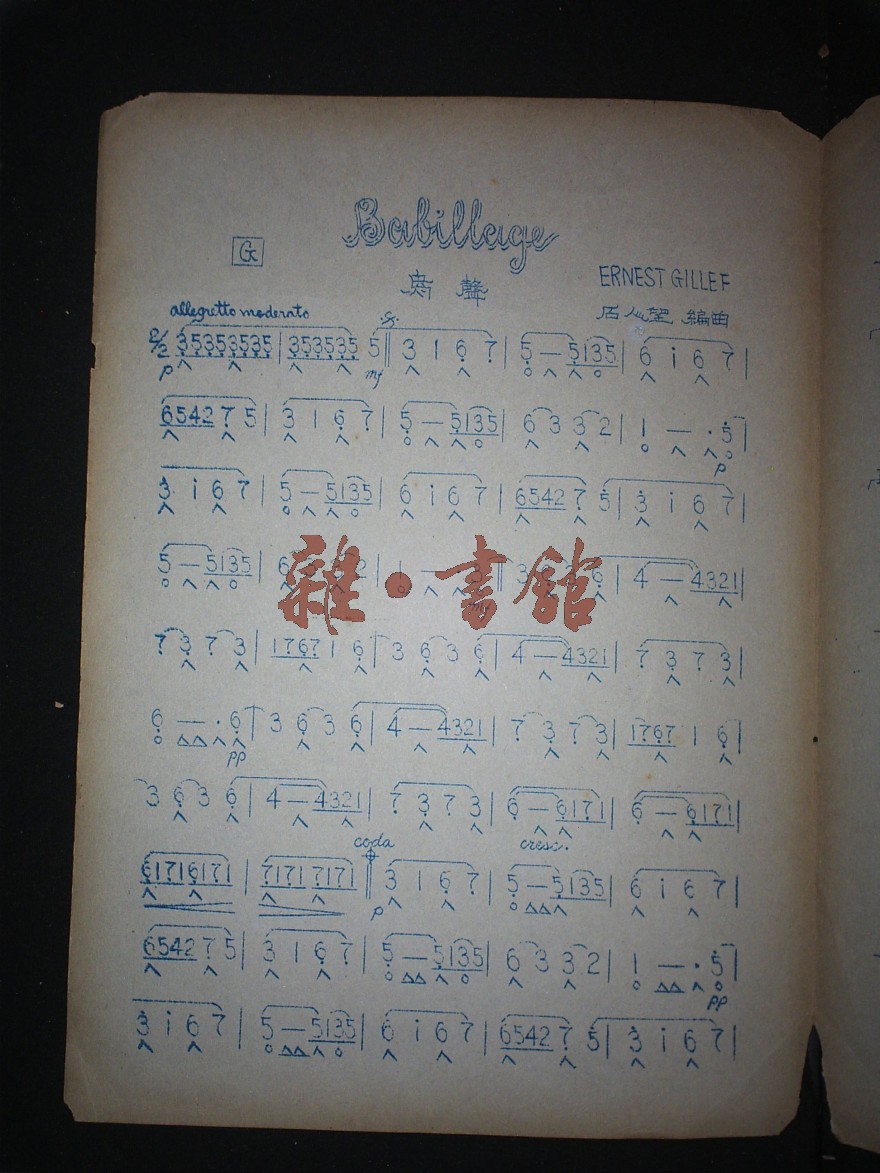 Babillage
G
ERNEST GILLEF
聲
石人望 編曲
allegretto moderato
2/2 35353535 | 353535 5 || 3 1 6 7 | 5 — 5135 | 6 i 6 7 |
p mf
6542 7 5 | 3 1 6 7 | 5 — 5135 | 6 3 3 2 | 1 — · 5 |
p
3 i 6 7 | 5 — 5135 | 6 i 6 7 | 6542 7 5 | 3 i 6 7 |
5 — 5135 | 6 | 1 — 6 | 4 — 4321 |
雜·書館
7 3 7 3 | 1767 1 6 | 3 6 3 6 | 4 — 4321 | 7 3 7 3 |
6 — · 6 | 3 6 3 6 | 4 — 4321 | 7 3 7 3 | 1767 1 6 |
pp
3 6 3 6 | 4 — 4321 | 7 3 7 3 | 6 — 6171 | 6 — 6171 |
coda cresc.
61716171 | 7171 7171 || 3 1 6 7 | 5 — 5135 | 6 i 6 7 |
p
6542 7 5 | 3 1 6 7 | 5 — 5135 | 6 3 3 2 | 1 — · 5 |
pp
3 i 6 7 | 5 — 5135 | 6 i 6 7 | 6542 7 5 | 3 i 6 7 |